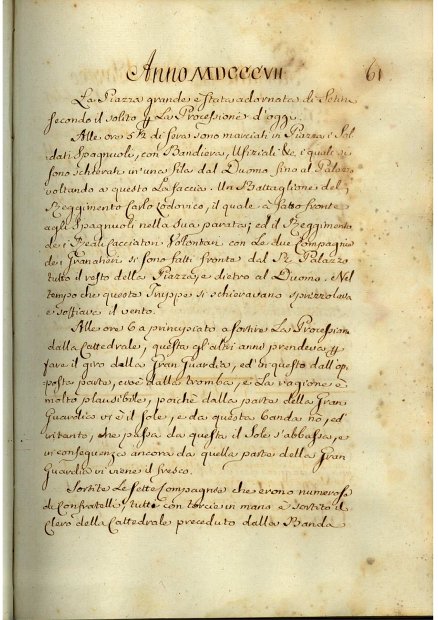 Anno MDCCCVII
61
La Piazza grande è stata adornata di Setine
secondo il solito p La Processione d'oggi.
Alle ore 5½ di sera sono marciati in Piazza i Sol
dati Spagnuoli, con Bandiera, Ufiziali &c, i quali si
sono schierati in una fila dal Duomo fino al Palazzo
voltando a questo La faccia. Un Battaglione del
Reggimento Carlo Lodovico, il quale à fatto fronte
agli Spagnuoli nella sua parata; ed il Reggimento
de i Reali Cacciatori Volontari con Le due Compagnie
dei Granatieri si sono fatti fronte dal Rl Palazzo
tutto il resto della Piazza, e dietro al Duomo. Nel
tempo che queste Truppe si schieravano spruzzolava
e soffiava il vento.
Alle ore 6 a principiato a sortire La Processione
dalla Cattedrale, questa gl'altri anni prendeva p
fare il giro della Gran Guardia, ed in questo dall'op-
posta parte, cioè dalla tromba, e La ragione è
molto plausibile, poichè dalla parte della Gran
Guardia vi è il sole, e da questa banda no, ed
intanto, che passa da questa il Sole s'abbassa, e
in conseguenza ancora da quella parte della Gran
Guardia vi viene il fresco.
Sortite Le sette Compagnie che erono numerose
di Confratelli, tutti con torcie in mano è sortito il
Clero della Cattedrale preceduto dalla Banda